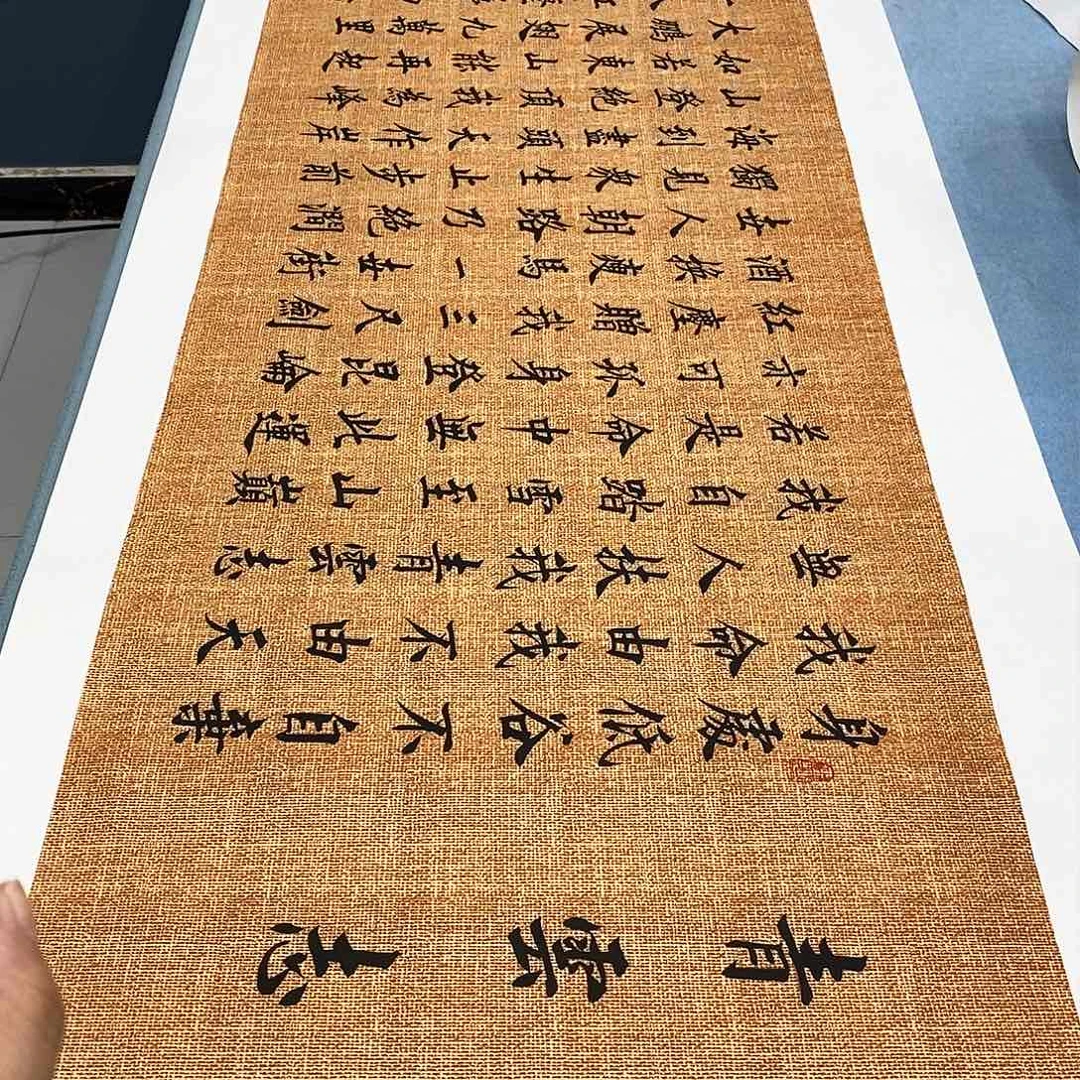 青雲志
身處低谷不自棄
我命由我不由天
無人扶我青雲志
我自踏雪至山巔
若是命中無此運
亦可孤身登昆崘
紅塵贈我三尺劍
酒換瘦馬一世街
世人朝路乃絕澗
獨見衆生止步前
海到盡頭天作岸
山登絶頂我為峰
如若東山能再起
大鵬展翅九萬里